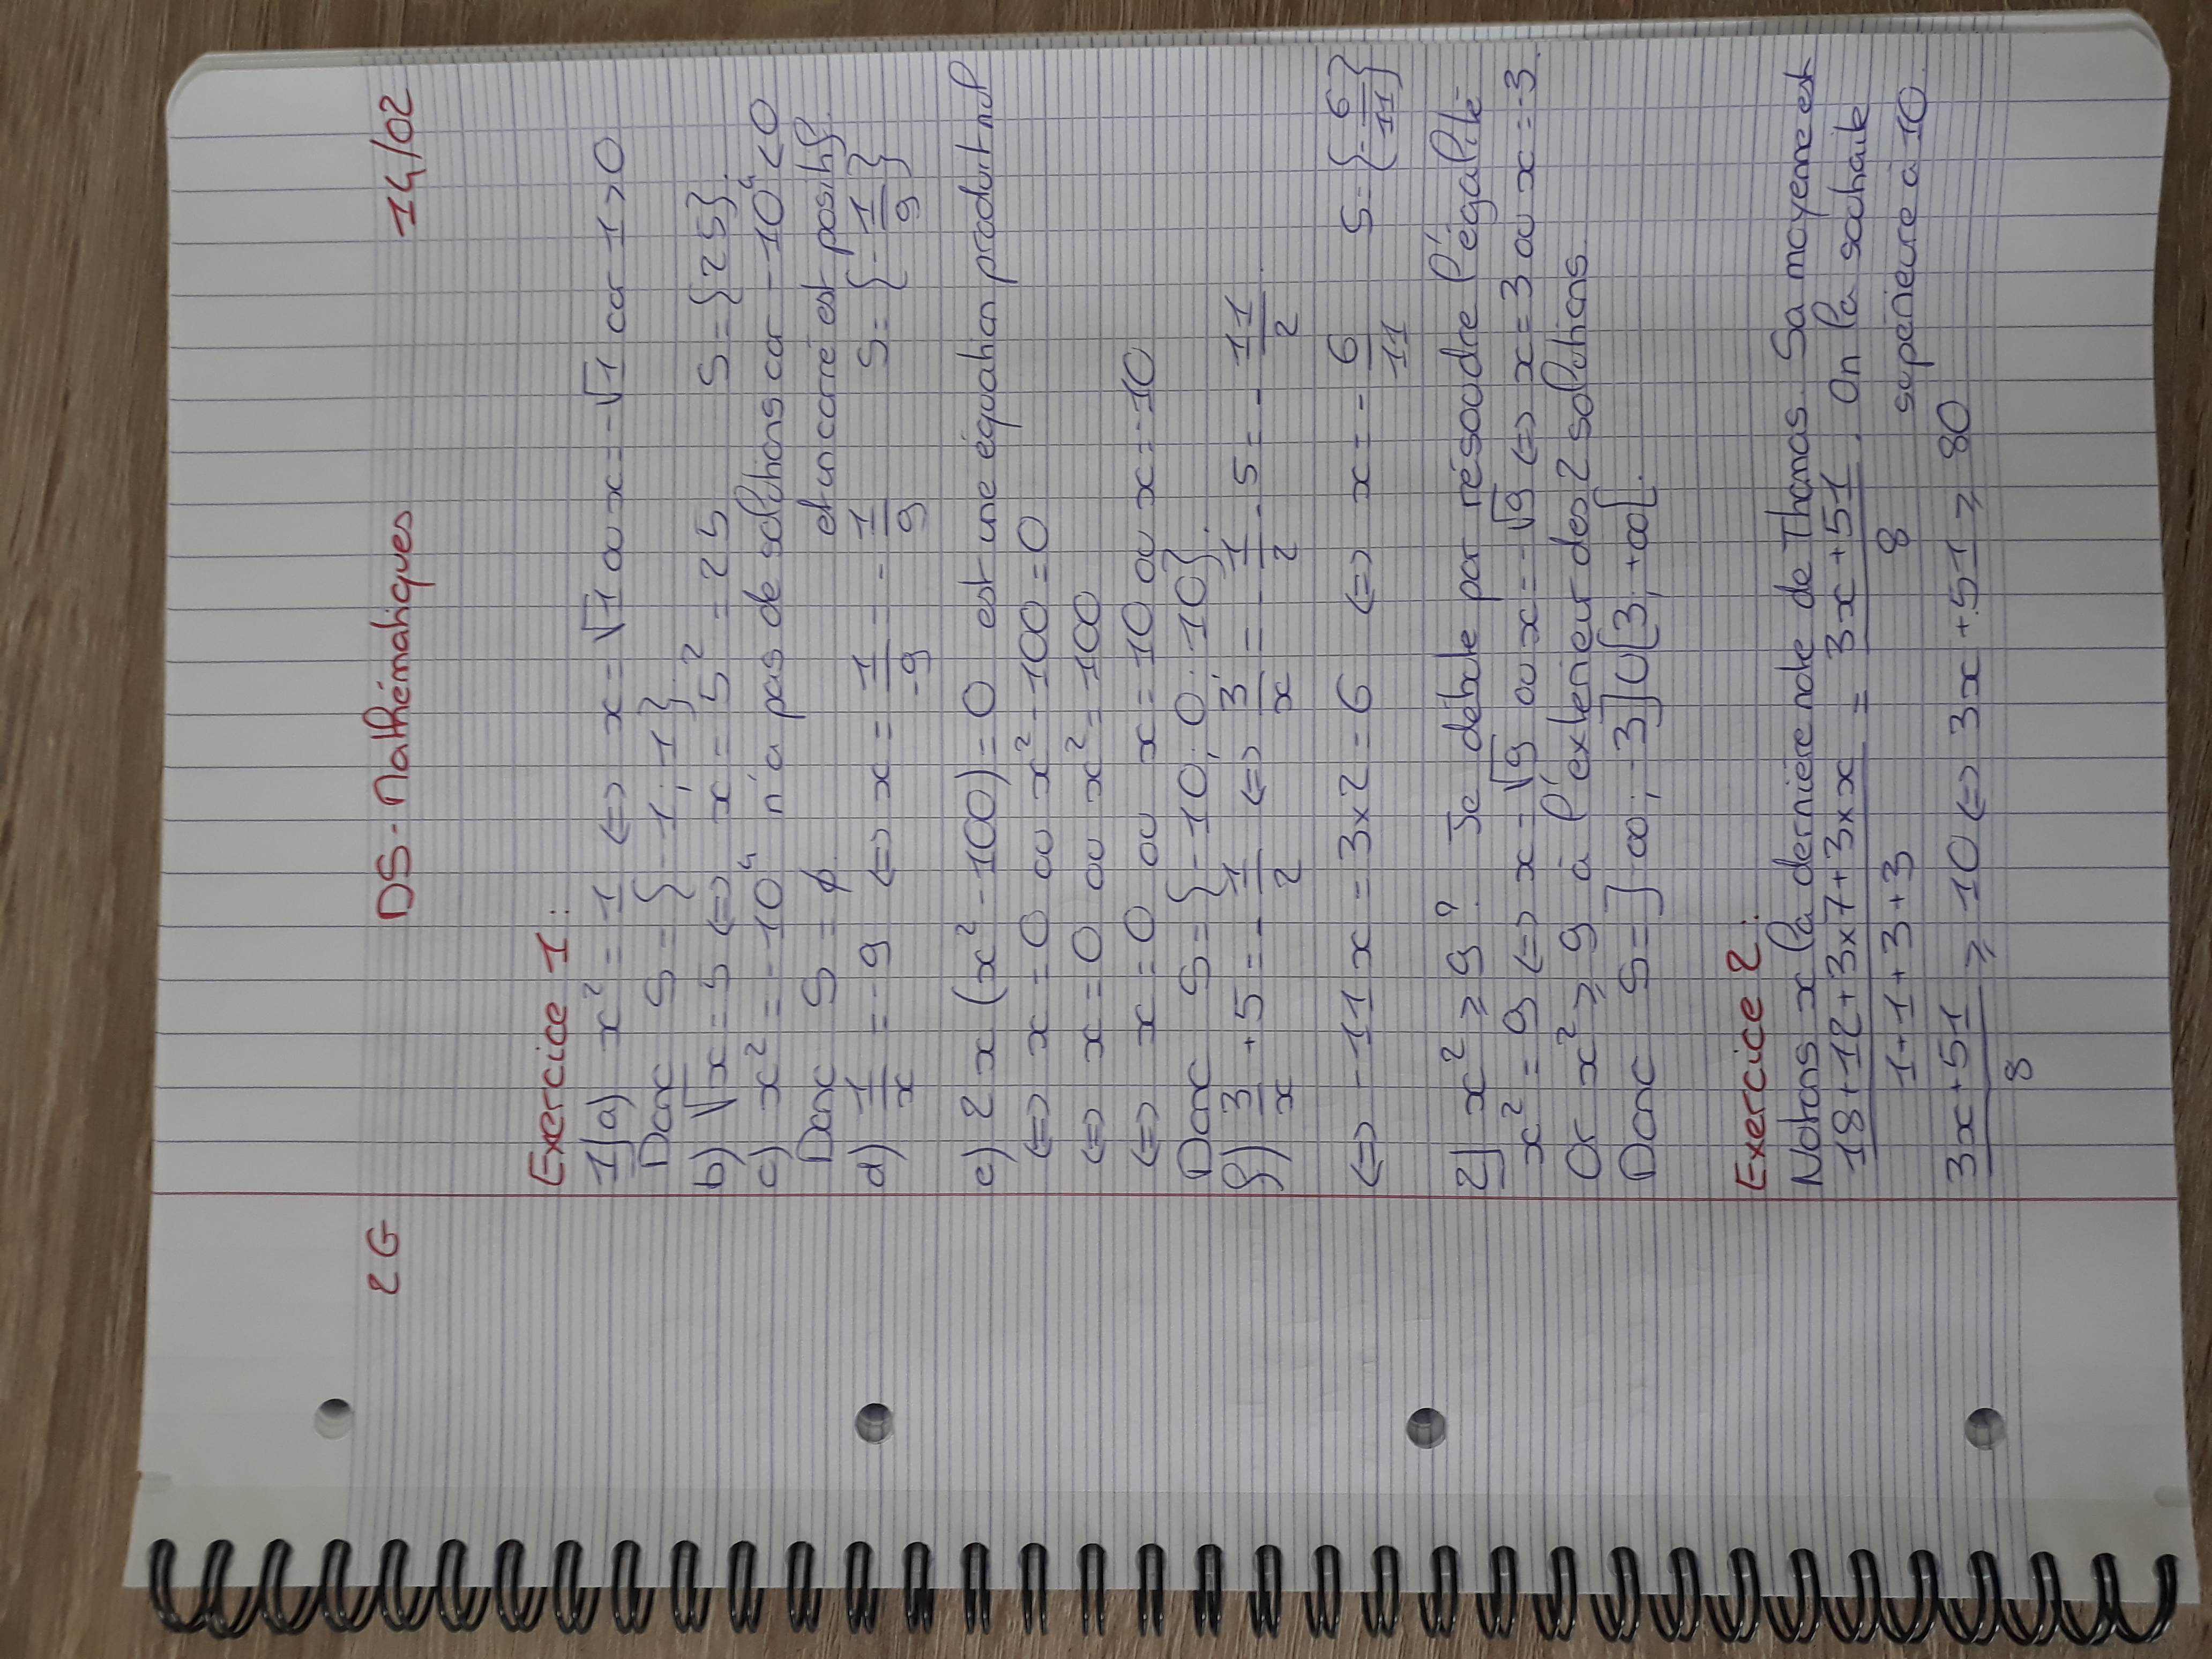 2G DS-Mathématiques 14/02
Exercice 1:
1) a) x² = 1 <=> x = √1 ou x = -√1 car 1 > 0
Donc S = {-1; 1}.
b) √x = 5 <=> x = 5² = 25 S = {25}.
c) x² = -10⁴ n'a pas de solutions car -10⁴ < 0
Donc S = ∅. et un carré est positif.
d) 1/x = -9 <=> x = 1/-9 = -1/9 S = {-1/9}
e) 2x(x² - 100) = 0 est une équation produit nul
<=> x = 0 ou x² - 100 = 0
<=> x = 0 ou x² = 100
<=> x = 0 ou x = 10 ou x = -10
Donc S = {-10; 0; 10}.
f) 3/x + 5 = -1/2 <=> 3/x = -1/2 - 5 = -11/2.
<=> -11x = 3x2 = 6 <=> x = -6/11 S = {-6/11}
2) x² ⩾ 9 ? Je débute par résoudre l'égalité
x² = 9 <=> x = √9 ou x = -√9 <=> x = 3 ou x = -3.
Or x² ⩾ 9 à l'extérieur des 2 solutions.
Donc S = ]-∞; -3]U[3; +∞[.
Exercice 2:
Notons x la dernière note de Thomas. Sa moyenne est
(18+12+3x7+3×x)/(1+1+3+3) = (3x+51)/8. On la souhaite
supérieure à 10.
(3x+51)/8 ⩾ 10 <=> 3x + 51 ⩾ 80